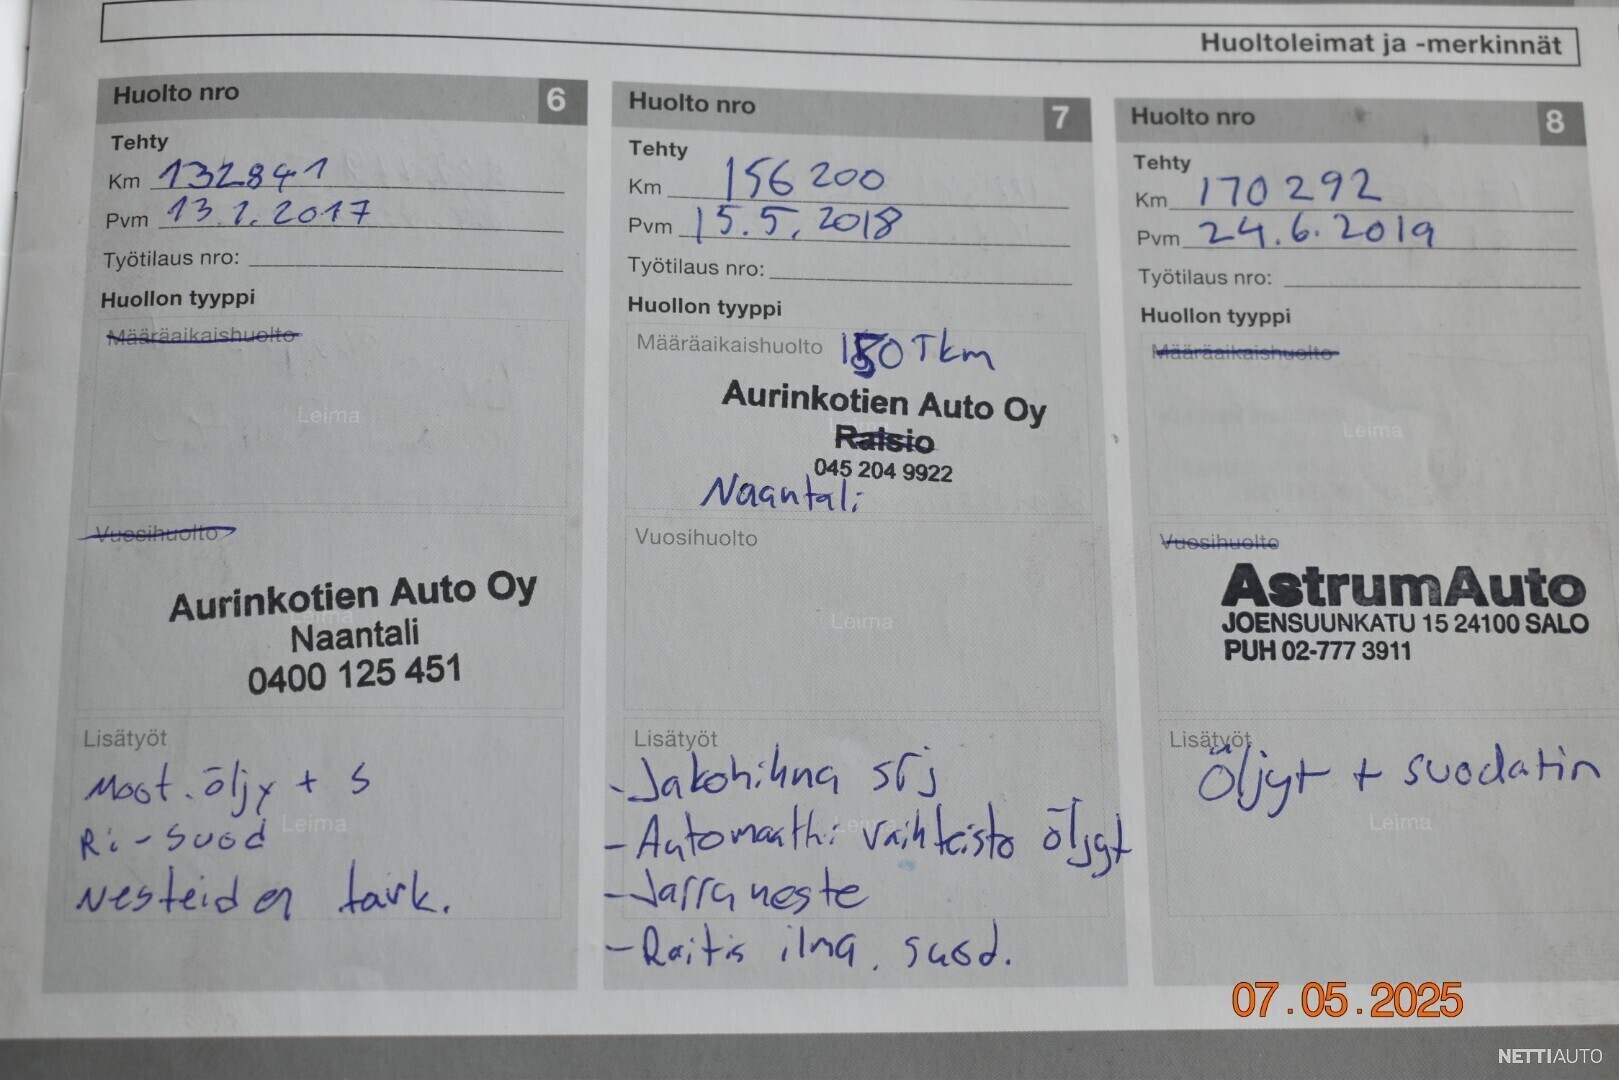 Huoltoleimat ja -merkinnät
Huolto nro 6
Tehty
Km 132841
Pvm 13.1.2017
Työtilaus nro:
Huollon tyyppi
Määräaikaishuolto
Leima
Vuosihuolto
Leima
Aurinkotien Auto Oy
Naantali
0400 125 451
Lisätyöt
Moot. öljy + S
Leima
Ri-suod
Nesteiden tark.
Huolto nro 7
Tehty
Km 156 200
Pvm 15.5.2018
Työtilaus nro:
Huollon tyyppi
Määräaikaishuolto 150 Tkm
Aurinkotien Auto Oy
Raisio
045 204 9922
Naantali
Vuosihuolto
Leima
Lisätyöt
- Jakohihna srj
- Automaatti vaihteisto öljyt
Leima
- Jarruneste
- Raitis ilma. suod.
Huolto nro 8
Tehty
Km 170 292
Pvm 24.6.2019
Työtilaus nro:
Huollon tyyppi
Määräaikaishuolto
Leima
Vuosihuolto
AstrumAuto
JOENSUUNKATU 15 24100 SALO
PUH 02-777 3911
Lisätyöt
Öljyt + suodatin
Leima
07.05.2025
NETTIAUTO